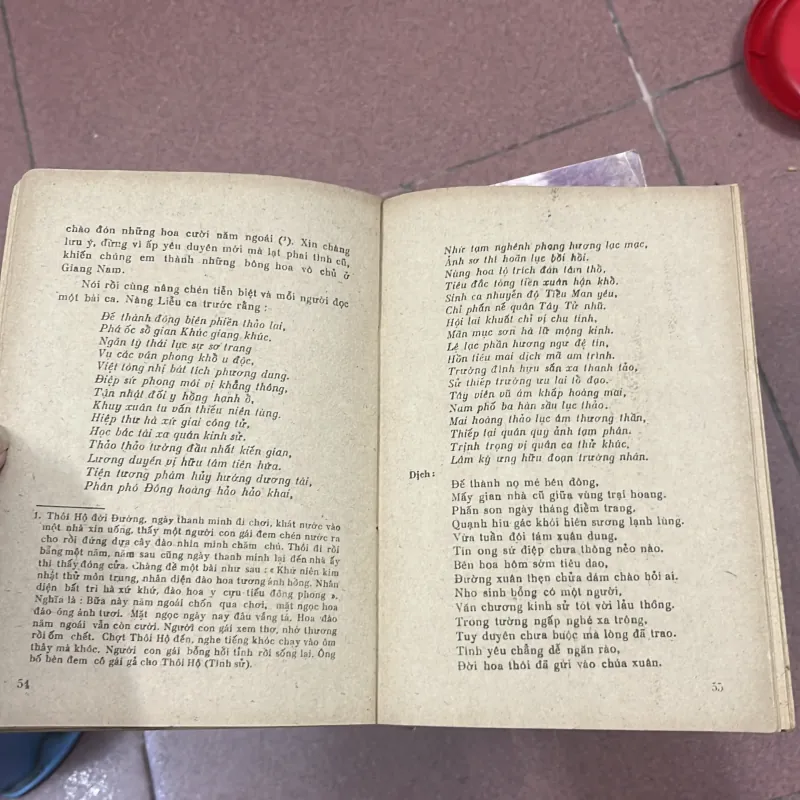 chào đón những hoa cười năm ngoái (¹). Xin chàng
lưu ý, đừng vì ấp yêu duyên mới mà lạt phai tình cũ,
khiến chúng em thành những bông hoa vô chủ ở
Giang Nam.
Nói rồi cùng nâng chén tiễn biệt và mỗi người đọc
một bài ca. Nàng Liễu ca trước rằng :
Đế thành đông biên phiền thảo lai,
Phá ốc số gian Khúc giang khúc.
Ngân tý thái lục sự sơ trang
Vụ các vân phong khổ u độc,
Việt tòng nhị bát tích phương dung.
Điệp sứ phong môi vị khẳng thông,
Tận nhật đối y hồng hạnh ổ,
Khuy xuân tu vấn thiếu niên tùng.
Hiệp thư hà xứ giai công tử,
Học bác tài xa quán kinh sử.
Thảo thảo tường đầu nhất kiến gian,
Lương duyên vị hữu tâm tiên hứa.
Tiện tương phàm hủy hướng dương tài,
Phân phó Đông hoàng hảo hảo khai,
1. Thôi Hộ đời Đường, ngày thanh minh đi chơi, khát nước vào
một nhà xin uống, thấy một người con gái đem chén nước ra
cho rồi đứng dựa cây đào nhìn mình chăm chú. Thôi đi rồi
bẵng một năm, năm sau cũng ngày thanh minh lại đến nhà ấy
thì thấy đóng cửa. Chàng đề một bài như sau : « Khứ niên kim
nhật thử môn trung, nhân diện đào hoa tương ánh hồng. Nhân
diện bất tri hà xứ khứ, đào hoa y cựu tiếu đông phong ».
Nghĩa là : Bữa này năm ngoái chốn qua chơi, mặt ngọc hoa
đào óng ánh tươi. Mặt ngọc ngày nay đâu vắng tá, Hoa đào
năm ngoái vẫn còn cười. Người con gái xem thơ, nhớ thương
rồi ốm chết. Chợt Thôi Hộ đến, nghe tiếng khóc chạy vào ôm
thây mà khóc. Người con gái bỗng hồi tỉnh rồi sống lại. Ông
bố bèn đem cô gái gả cho Thôi Hộ (Tình sử).
54
Như tạm nghênh phong hương lạc mạc,
Ảnh sơ thì hoãn lục bồi hồi.
Nùng hoa lộ trích đàn tâm thổ,
Tiêu đắc tòng tiền xuân hận khổ.
Sinh ca nhuyễn độ Tiểu Man yêu,
Chỉ phấn nề quân Tây Tử nhũ.
Hội lai khuất chỉ vị chu tinh,
Mãn mục sơn hà lữ mộng kinh.
Lệ lạc phần hương ngư đệ tín,
Hồn tiêu mai dịch mã um trình.
Trường đình hựu sắn xa thanh tảo,
Sử thiếp trường ưu lai lỗ đạo.
Tây viên vũ ám khấp hoàng mai,
Nam phố ba hàn sầu lục thảo.
Mai hoàng thảo lục ám thương thần,
Thiếp tại quân quy ảnh tạm phân.
Trịnh trọng vị quân ca thử khúc,
Lâm kỳ ưng hữu đoạn trường nhân.
Dịch :
Đế thành nọ mé bên đông,
Mấy gian nhà cũ giữa vùng trại hoang.
Phấn son ngày tháng điểm trang,
Quạnh hiu gác khói hiên sương lạnh lùng.
Vừa tuần đôi tám xuân dung,
Tin ong sứ điệp chưa thông nẻo nào.
Bên hoa hôm sớm tiêu dao,
Đường xuân thẹn chửa dám chào hỏi ai.
Nho sinh bỗng có một người,
Văn chương kinh sử tót vời lầu thông.
Trong tường ngấp nghé xa trông,
Tuy duyên chưa buộc mà lòng đã trao.
Tình yêu chẳng dễ ngăn rào,
Đời hoa thôi đã gửi vào chúa xuân.
55